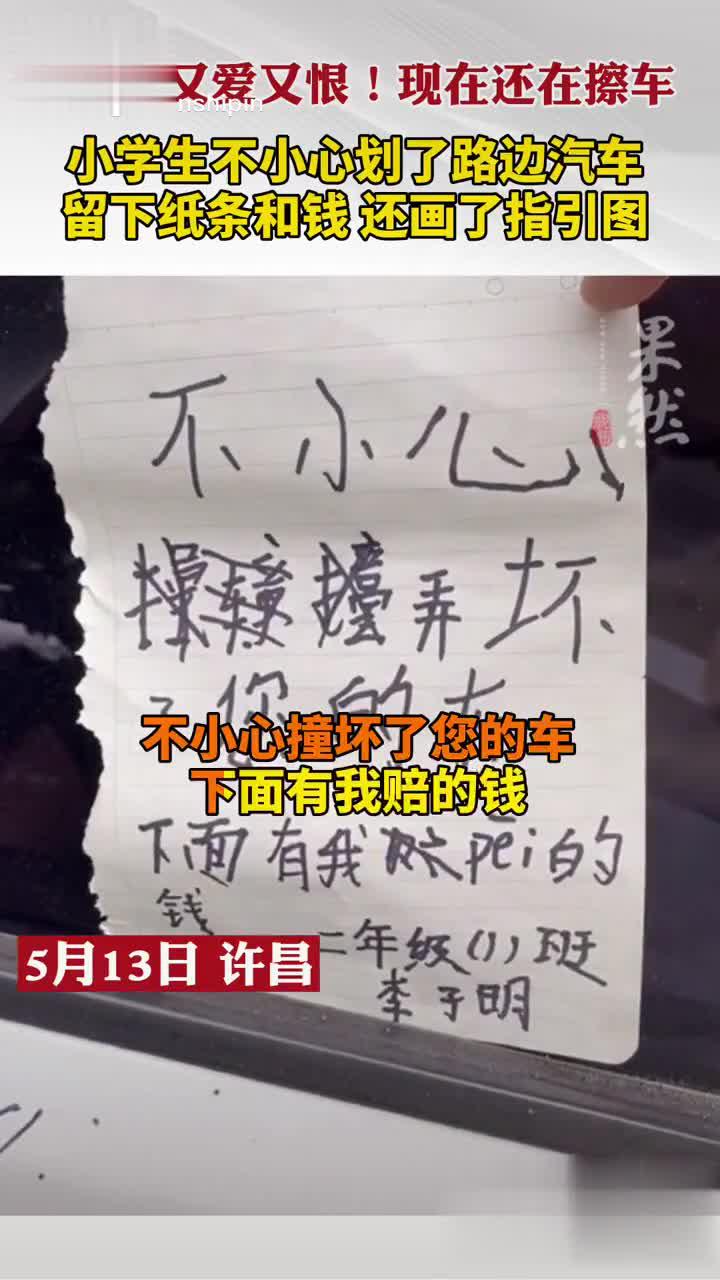 又爱又恨！现在还在擦车
nshipin
小学生不小心划了路边汽车
留下纸条和钱 还画了指引图
果然
不小心
弄坏
了您的车
不小心撞坏了您的车
下面有我赔的钱
下面有我 pēi的
钱
二年级(1)班
李子明
5月13日 许昌